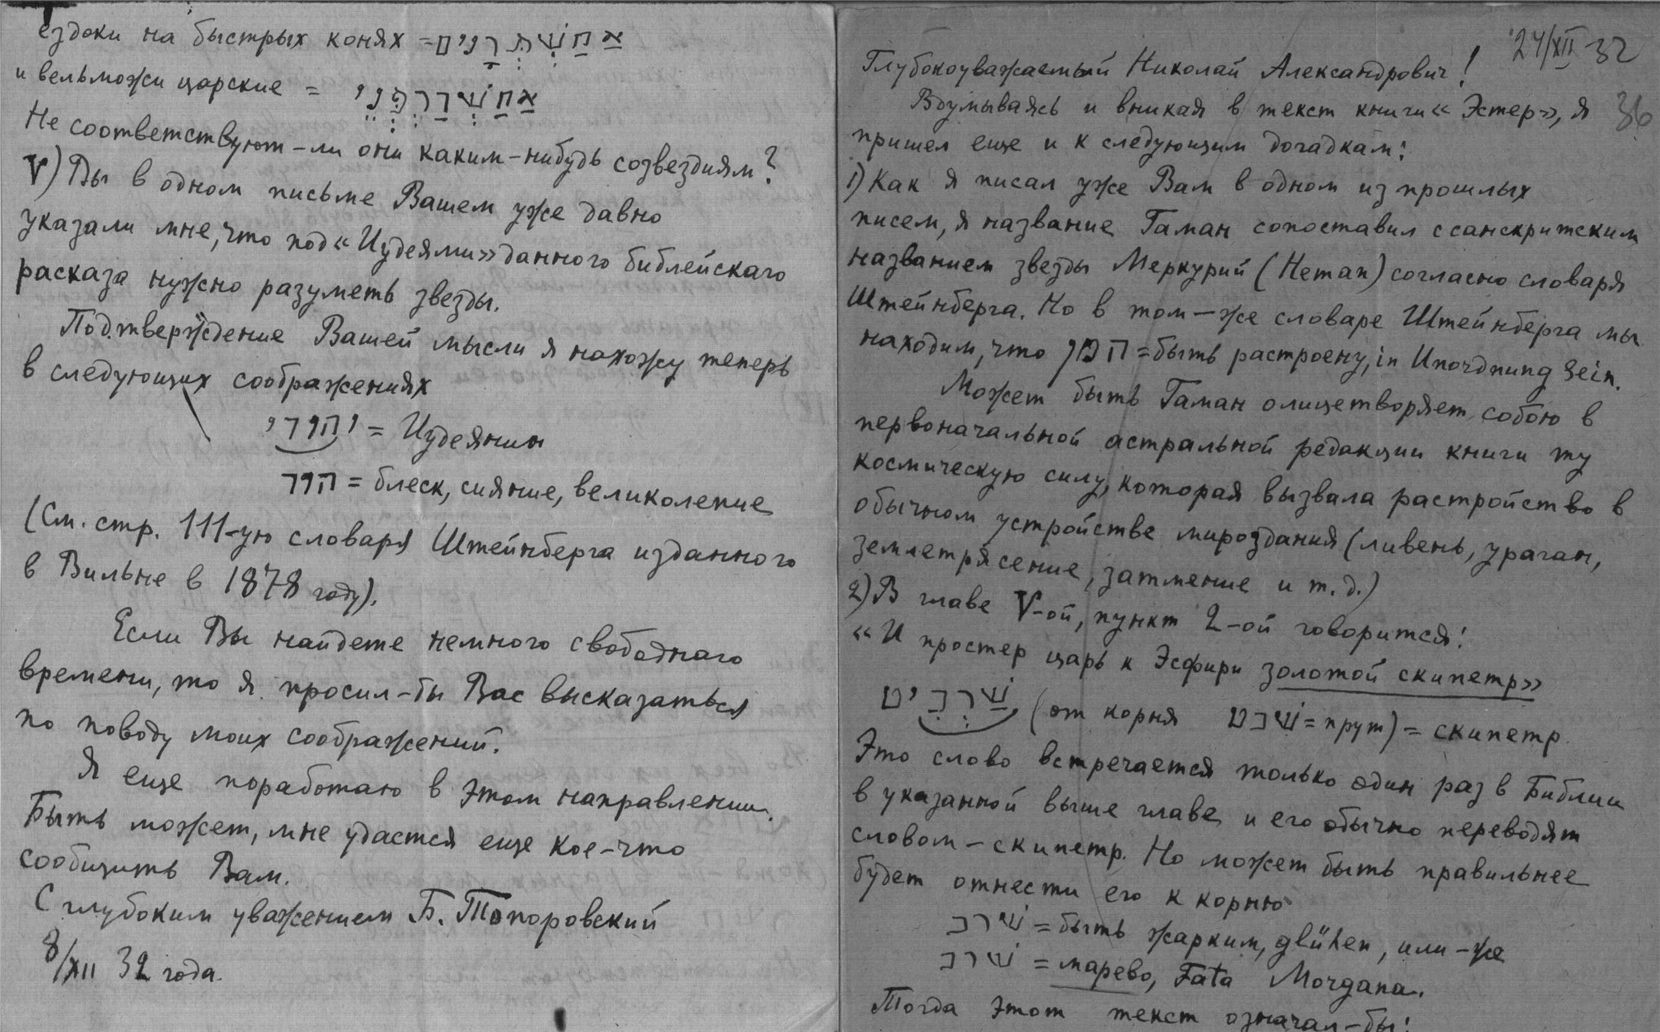 ездоки на быстрых конях = אֲחַשְׁתְּרָנִים
и вельможи царские = אֲחַשְׁדַּרְפְּנֵי
Не соответствуют-ли они каким-нибудь созвездиям?
V) Вы в одном письме Вашем уже давно
указали мне, что под «Иудеями» данного библейскаго
расказа нужно разуметь звезды.
Подтверждение Вашей мысли я нахожу теперь
в следующих соображениях
יהודי = Иудеянин
הוד = блеск, сияние, великолепие
(См. стр. 111-ую словаря Штейнберга изданного
в Вильне в 1878 году).
Если Вы найдете немного свободнаго
времени, то я просил-бы Вас высказаться
по поводу моих соображений.
Я еще поработаю в этом направлении.
Быть может, мне удастся еще кое-что
сообщить Вам.
С глубоким уважением Б. Топоровский
8/XII 32 года.
24/XII 32
Глубокоуважаемый Николай Александрович!
36
Вдумываясь и вникая в текст книги «Эстер», я
пришел еще и к следующим догадкам:
1) Как я писал уже Вам в одном из прошлых
писем, я название Гаман сопоставил с санскритским
названием звезды Меркурий (Heman) согласно словаря
Штейнберга. Но в том-же словаре Штейнберга мы
находим, что המן = быть растроену, in Unordnung sein.
Может быть Гаман олицетворяет собою в
первоначальной астральной редакции книги ту
космическую силу, которая вызвала растройство в
обычном устройстве мироздания (ливень, ураган,
землетрясение, затмение и т. д.)
2) В главе V-ой, пункт 2-ой говорится:
«И простер царь к Эсфири золотой скипетр»
שַׁרְבִים (от корня שבט = прут) = скипетр.
Это слово встречается только один раз в Библии
в указанной выше главе и его обычно переводят
словом - скипетр. Но может быть правильнее
будет отнести его к корню
שרב = быть жарким, glühen, или-же
שרב = марево, Fata Morgana.
Тогда этот текст означал-бы: